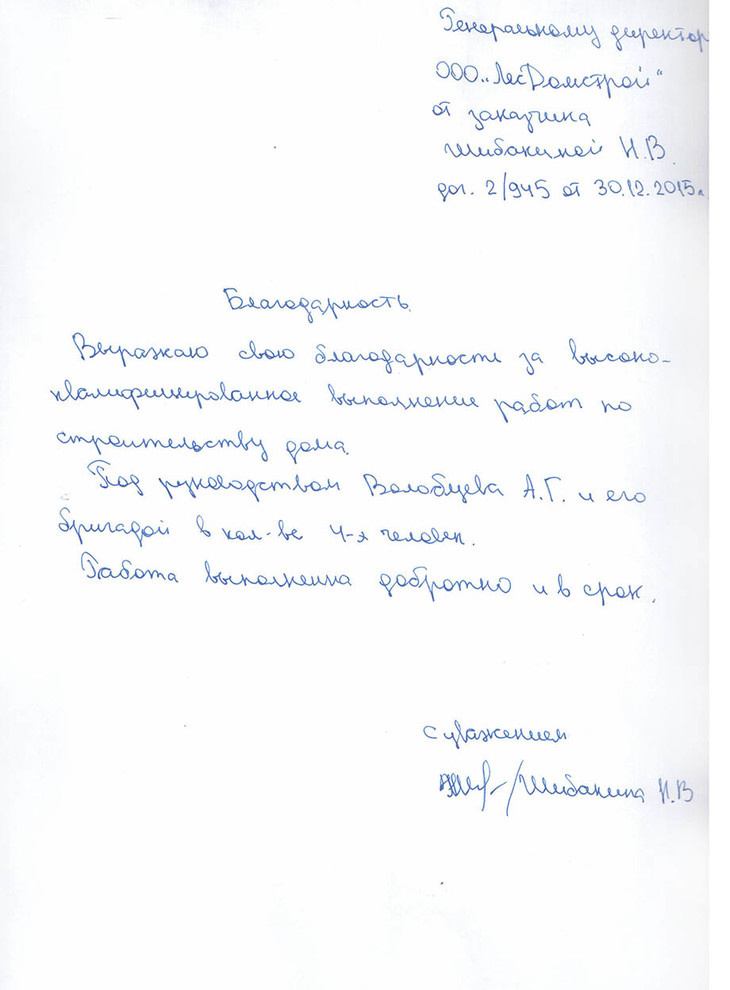 Генеральному директор
ООО „ЛесДомстрой"
от заказчика
Шибакиной Н.В.
дог. 2/945 от 30.12.2015г.
Благодарность.
Выражаю свою благодарности за высоко-
квалифицированное выполнение работ по
строительству дома.
Под руководством Волобуева А.Г. и его
бригадой в кол-ве 4-я человек.
Работа выполненна добротно и в срок.
С уважением
/Шибакина Н.В